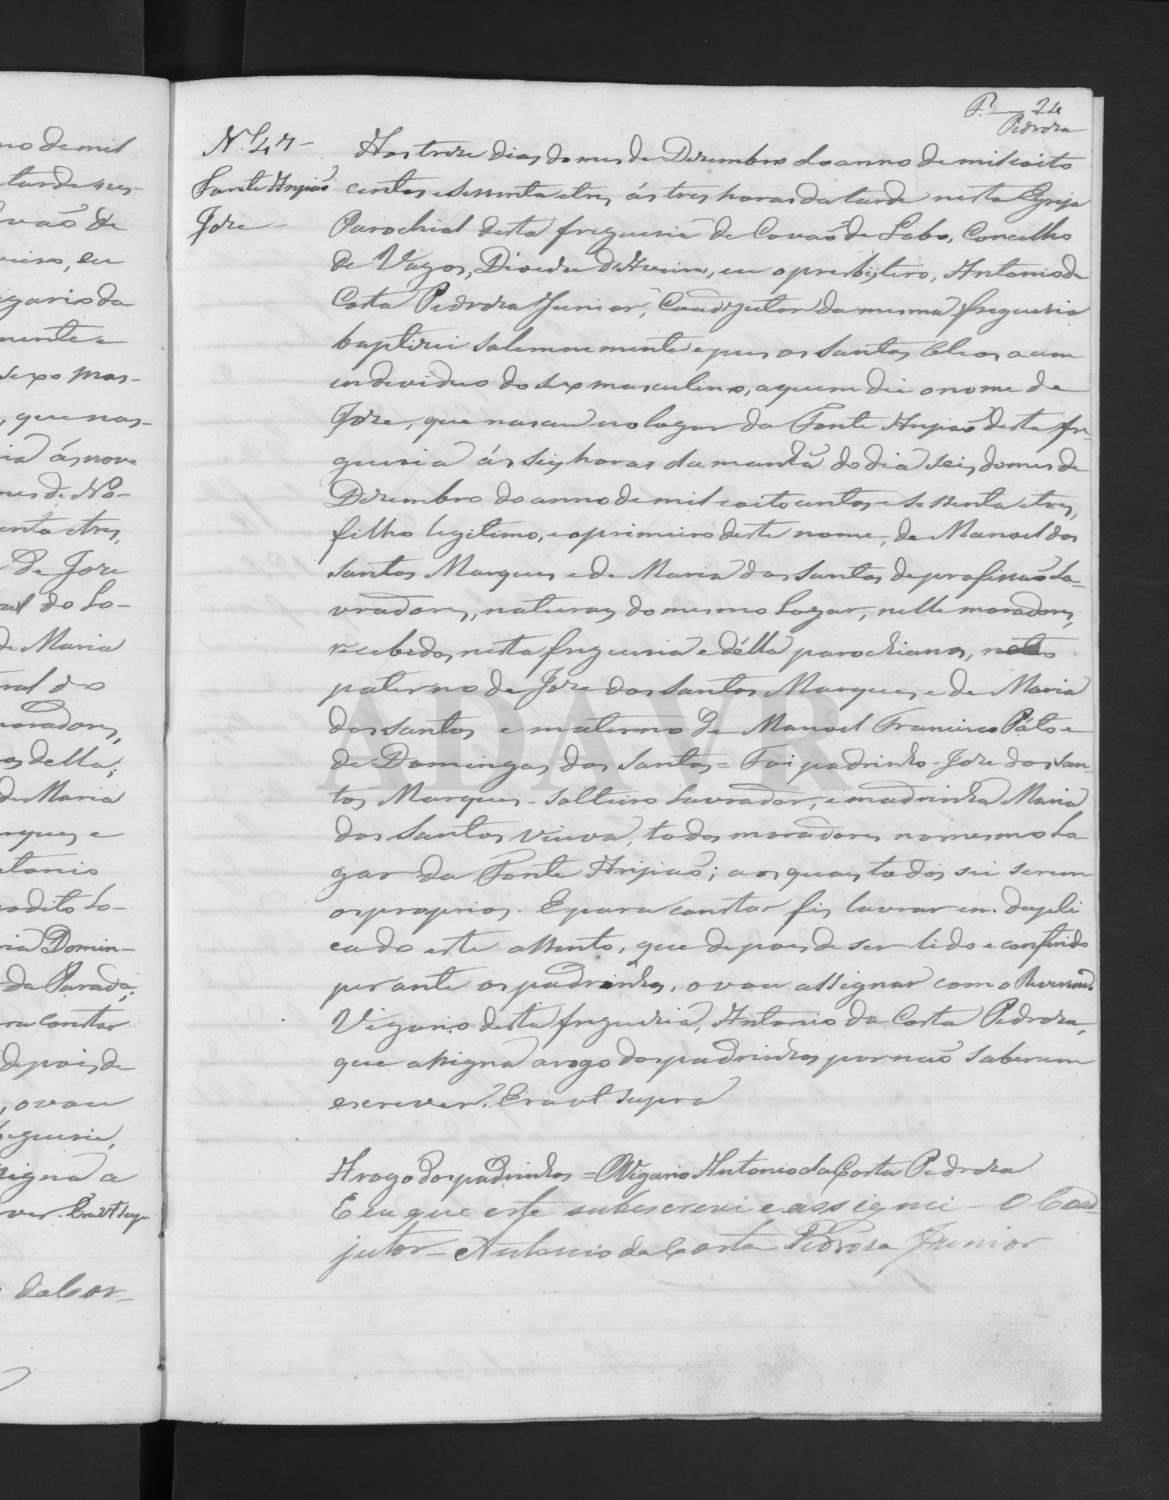 F. 24
Pedroza
N.º 47 -
Fonte Angião
Joze -
Aos treze dias do mes de Dezembro do anno de mil coito
centos e sessenta e tres, ás tres horas da tarde nesta Egreja
Parochial desta freguesia de Covaõ de Lobo, Concelho
de Vagos, Diocese d'Aveiro, eu o presbytero, Antonio da
Costa Pedroza Junior, Coadjutor da mesma freguesia
baptizei solemnemente e pus os santos oleos a um
individuo do sexo masculino, a quem dei o nome de
Joze, que nasceu no logar da Fonte Angiaõ desta fre-
guesia ás seis horas da manhã do dia seis do mes de
Dezembro do anno de mil coito centos e sessenta e tres,
filho legitimo, e o primeiro deste nome, de Manoel dos
Santos Marques e de Maria dos Santos de profissaõ La-
vradores, naturaes do mesmo Logar, nelle moradores,
recebidos nesta freguesia e délla parochianos, neto
paterno de Joze dos Santos Marques e de Maria
dos Santos e materno de Manoel Francisco Páto e
de Domingas dos Santos = Foi padrinho - Joze dos San-
tos Marques - Solteiro Lavrador, e madrinha Maria
dos Santos Viuva, todos moradores no mesmo Lo
gar da Fonte Angiaõ; aos quaes todos sei serem
os proprios. E para constar fis lavrar em dupli
cado este assento, que depois de ser lido e conferido
perante os padrinhos, o vou assignar com o Reverendo
Vigario desta freguezia, Antonio da Costa Pedroza,
que assigna a rogo dos padrinhos por naõ saberem
escrever. Era ut supra
A rogo dos padrinhos = O Vigario Antonio da Costa Pedroza
E eu que este subescrevi e assignei - O Coad-
jutor - Antonio da Costa Pedroza Junior
no de mil
tarde nes-
vaõ de
eiro, eu
igario da
mente e
sexo mas-
, que nas-
ia ás nove
mes de No-
enta e tres,
de Joze
ral do Lo-
de Maria
ral do
moradores,
os della;
de Maria
rques e
ntonio
o dito Lo-
ria Domin-
da Parada;
ra constar
depois de
, o vou
eguesia,
signa a
ver. Era ut sup.
da Cos-
ADAVR